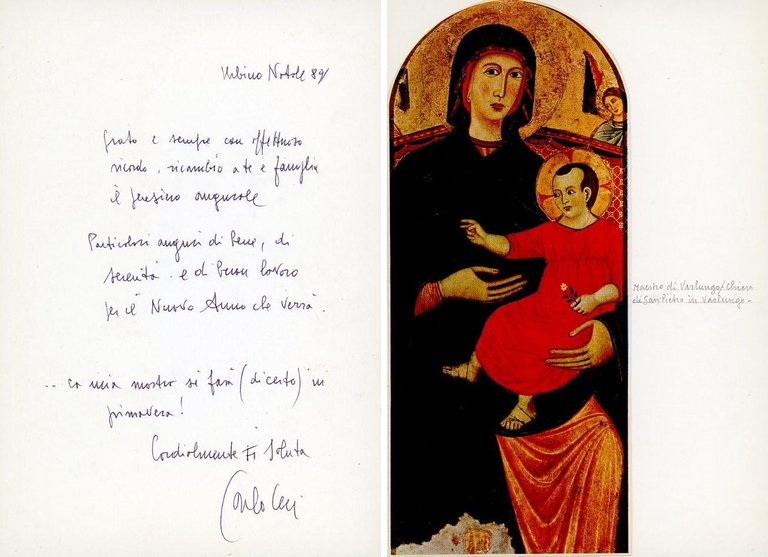 Urbino Natale 89
Grato e sempre con affettuoso
ricordo, ricambio a te e famiglia
il pensiero augurale
Particolari auguri di bene, di
serenità e di buon lavoro
per il Nuovo Anno che verrà.
... la mia mostra si farà (di certo) in
primavera!
Cordialmente Ti Saluta
Carlo Ceci
Maestro di Varlungo / Chiesa
di San Pietro in Varlungo -